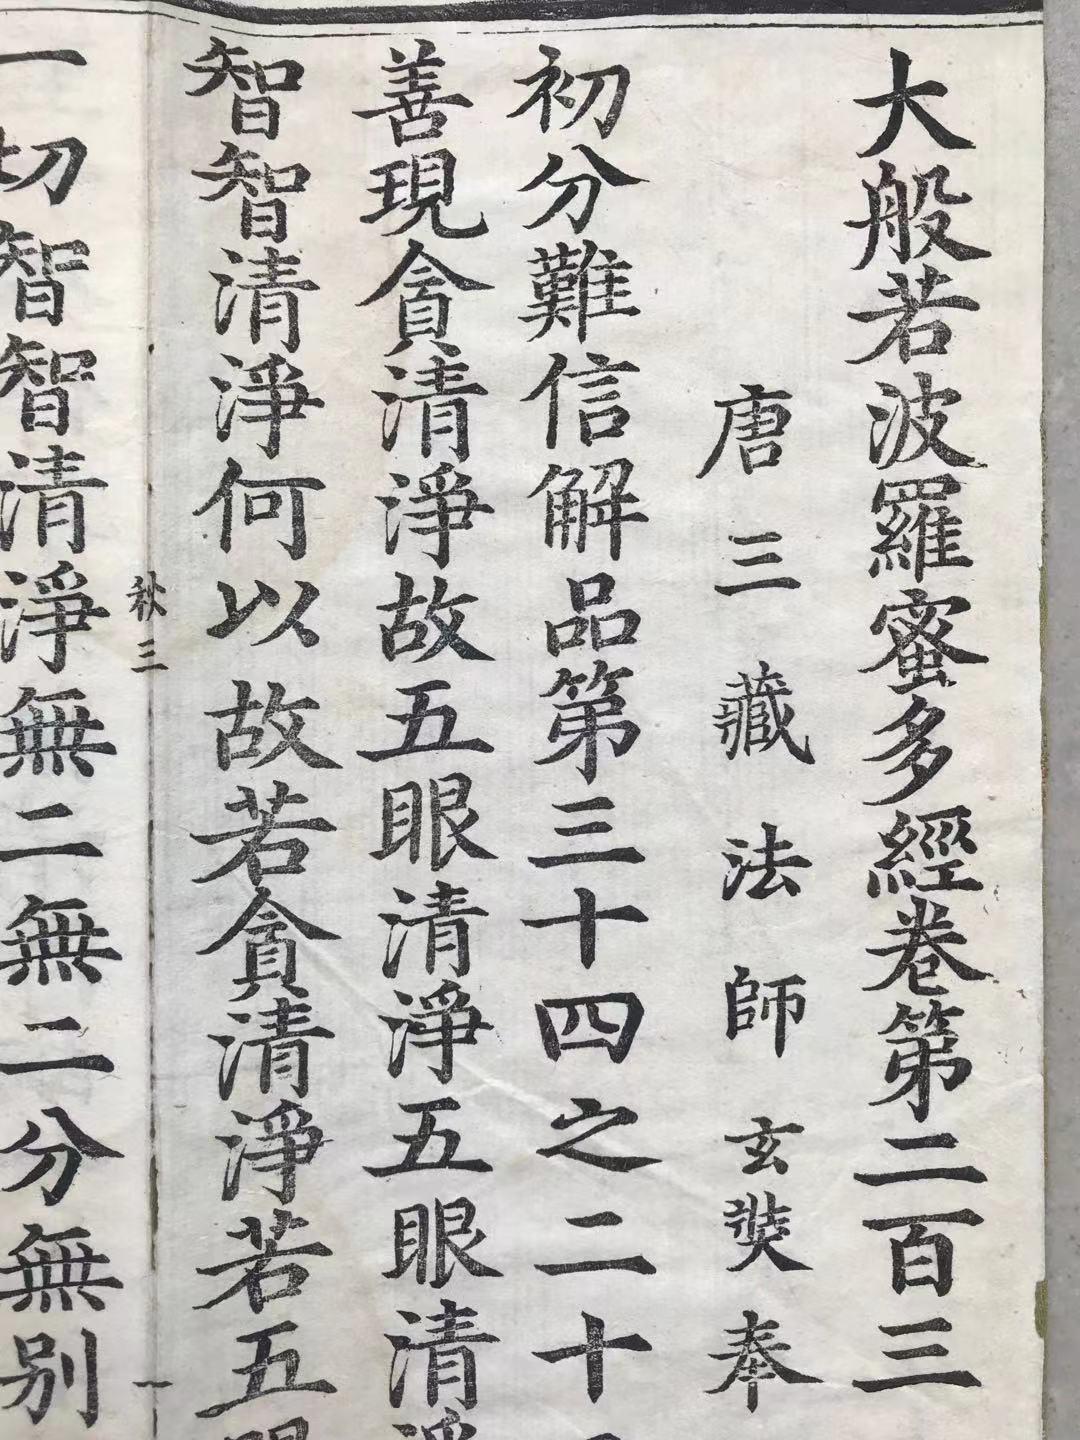 大般若波羅蜜多經卷第二百三
唐三藏法師玄奘奉
初分難信解品第三十四之二十
善現貪清淨故五眼清淨五眼清淨
智智清淨何以故若貪清淨若五眼
秋三
一
一切智智清淨無二無二分無別